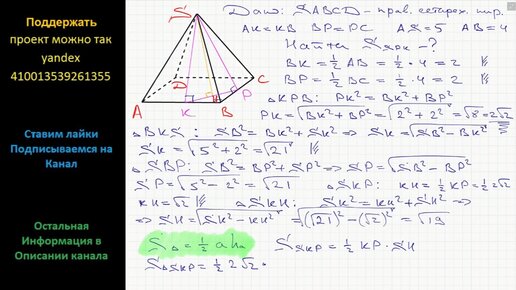 Поддержать
проект можно так
yandex
410013539261355
Ставим лайки
Подписываемся на
Канал
Остальная
Информация в
Описании канала
S
D
C
P
A
K
B
H
Дано: SABCD – прав. четырех. пир.
AK=KB BP=PC AS=5 AB=4
Найти S SKP - ?
BK = 1/2 AB = 1/2 · 4 = 2
BP = 1/2 BC = 1/2 · 4 = 2
△KPB: PK² = BK² + BP²
PK = √BK² + BP² = √2² + 2² = √8 = 2√2
△BKS: SB² = BK² + SK² ⇒ SK = √SB² - BK²
SK = √5² + 2² = √21
△SBP: SB² = BP² + SP² ⇒ SP = √SB² - BP²
SP = √5² - 2² = √21 △SKP: KH = 1/2 KP = 1/2 2√2
KH = √2 △SKH: SK² = KH² + SH² ⇒
⇒ SH = √SK² - KH² = √(√21)² - (√2)² = √19
S△ = 1/2 a hₐ S SKP = 1/2 KP · SH
S△SKP = 1/2 2√2 ·